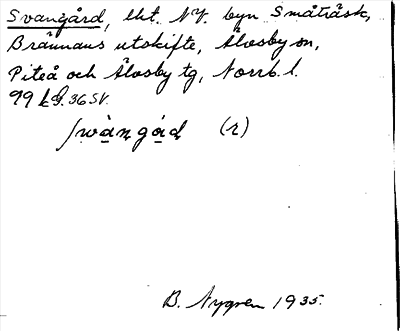 Svangård, lht. NV. byn Småträsk,
Brännans utskifte, Älvsby sn,
Piteå och Älvsby tg, Norrb. l.
99 36 SV.
(r)
B. Nygren 1935.